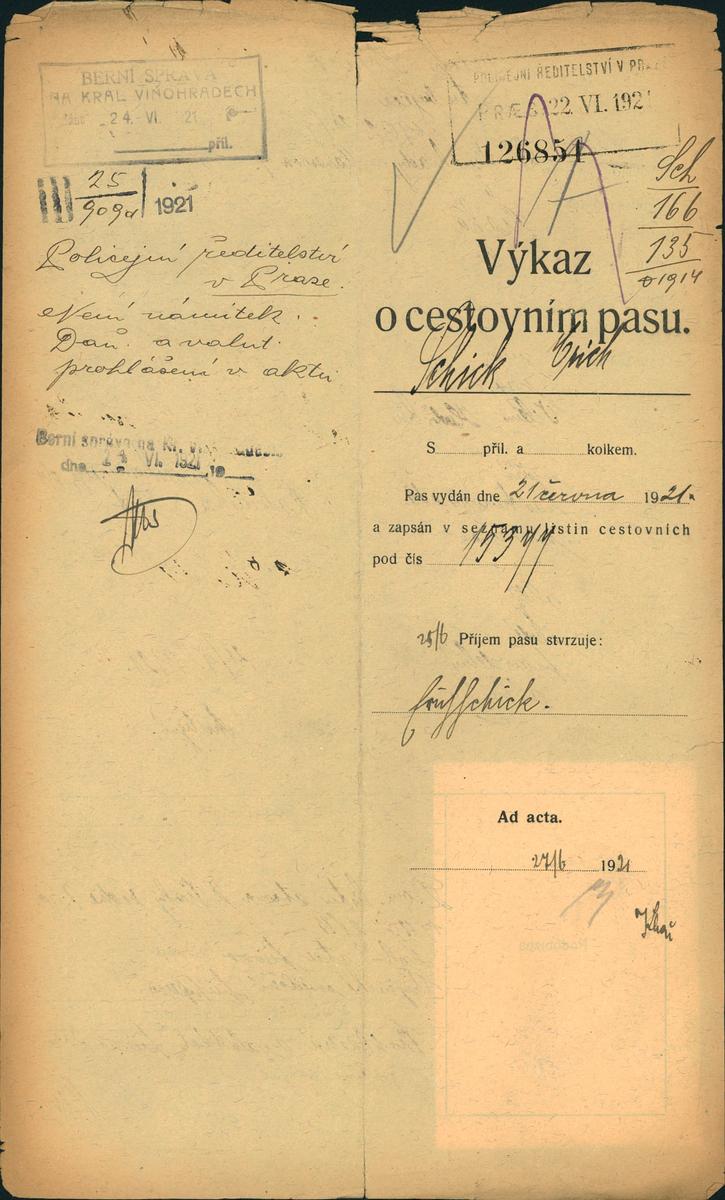 BERNÍ SPRÁVA
NA KRÁL. VINOHRADECH
24. VI. 1921
příl.
III 25/909a 1921
Policejní ředitelství
v Praze.
Není námitek.
Daň. a valut.
prohlášení v aktu
Berní správa na Kr.
dne 24 VI. 1921 19
POLICEJNÍ ŘEDITELSTVÍ V PRAZE
PRÆS. 22. VI. 1921
126851
Sch
166
135
1914
Výkaz
o cestovním pasu.
Schick Erich
S příl. a kolkem.
Pas vydán dne 21 června 1921.
a zapsán v seznamu listin cestovních
pod čís 15377
25/6 Příjem pasu stvrzuje:
Erich Schick.
Ad acta.
27/6 1921